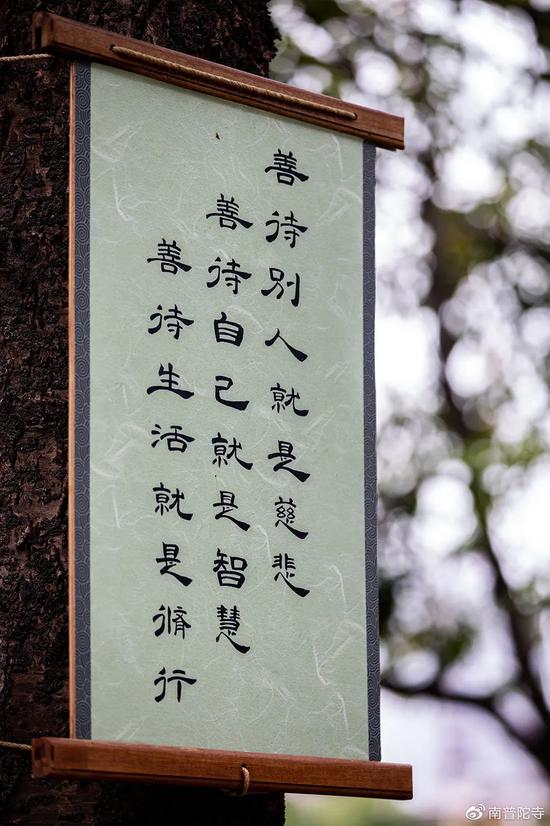 善待别人就是慈悲
善待自己就是智慧
善待生活就是脩行
南普陀寺